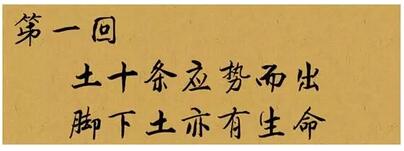 第一回
土十条应势而出
脚下土亦有生命